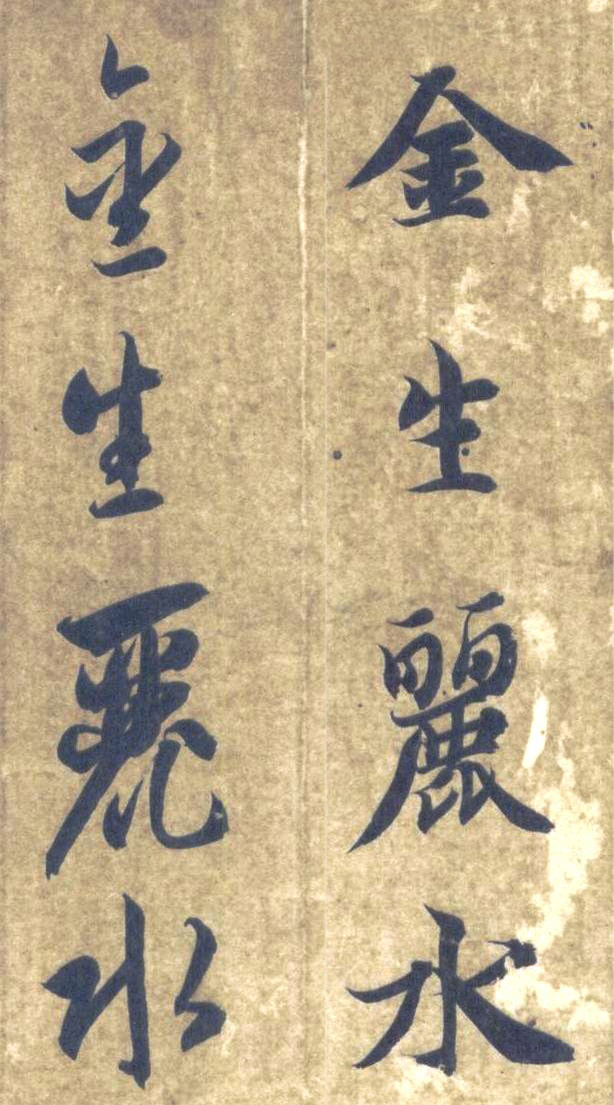 金生麗水
金生麗水